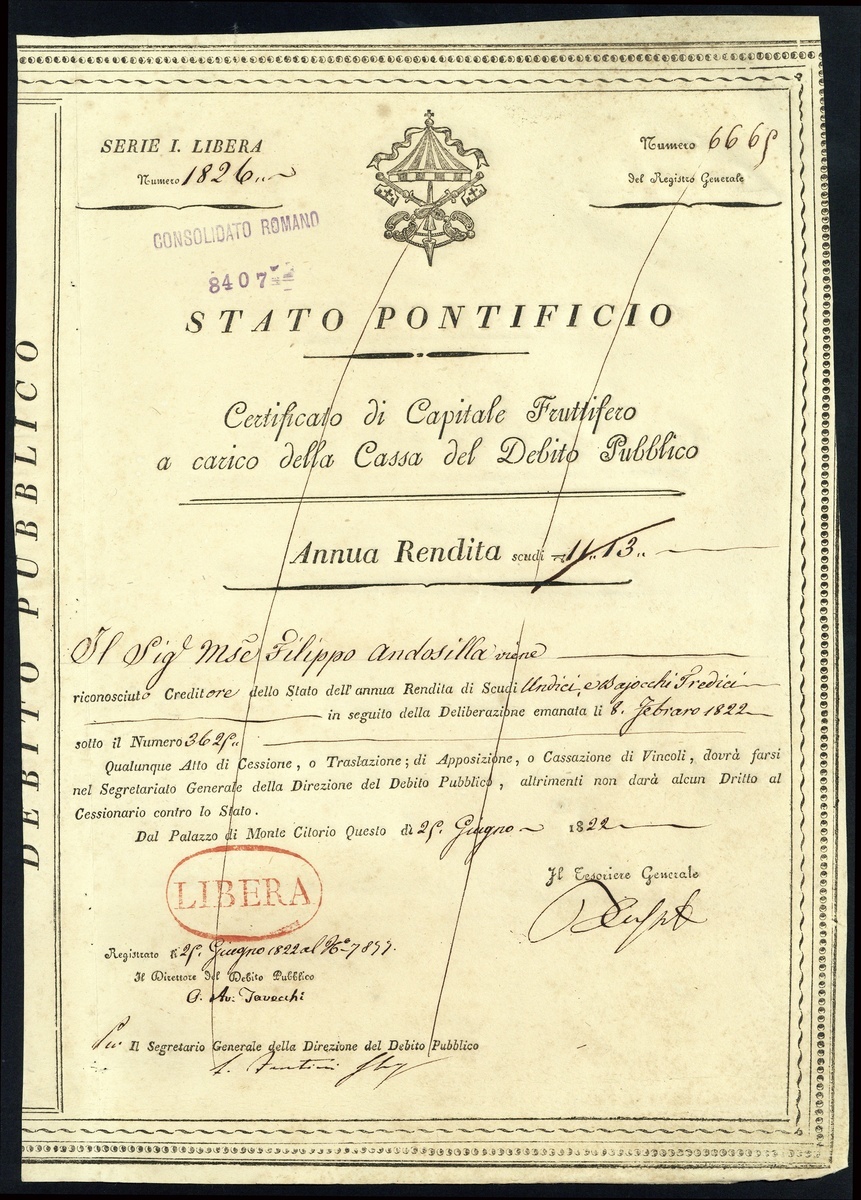 DEBITO PUBBLICO
SERIE I. LIBERA
Numero 1826
Numero 6665
del Registro Generale
CONSOLIDATO ROMANO
8407
STATO PONTIFICIO
Certificato di Capitale Fruttifero
a carico della Cassa del Debito Pubblico
Annua Rendita scudi 11 " 13 "
Il Sigr Mse Filippo Andosilla viene
riconosciuto Creditore dello Stato dell'annua Rendita di Scudi Undici, e Bajocchi Tredici
in seguito della Deliberazione emanata li 8. Febraro 1822
sotto il Numero 3625 "
Qualunque Atto di Cessione, o Traslazione; di Apposizione, o Cassazione di Vincoli, dovrà farsi
nel Segretariato Generale della Direzione del Debito Pubblico, altrimenti non darà alcun Dritto al
Cessionario contro lo Stato.
Dal Palazzo di Monte Citorio Questo dì 25. Giugno 1822
LIBERA
Il Tesoriere Generale
Registrato li 25. Giugno 1822 al No 7855.
Il Direttore del Debito Pubblico
Av: Tavecchi
Il Segretario Generale della Direzione del Debito Pubblico